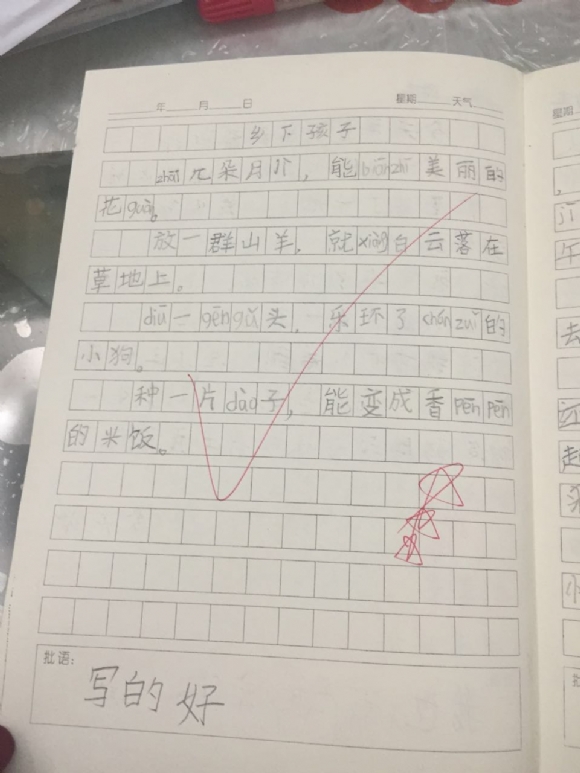 年 月 日 星期 天气
乡下孩子
zhāi 几朵月几，能biānzhī美丽的
花guān。
放一群山羊，就xiàng白云落在
草地上。
diū一gēngǔ头，乐坏了chánzuǐ的
小狗。
种一片dào子，能变成香pēnpēn
的米饭。
批语：
写的好
星期